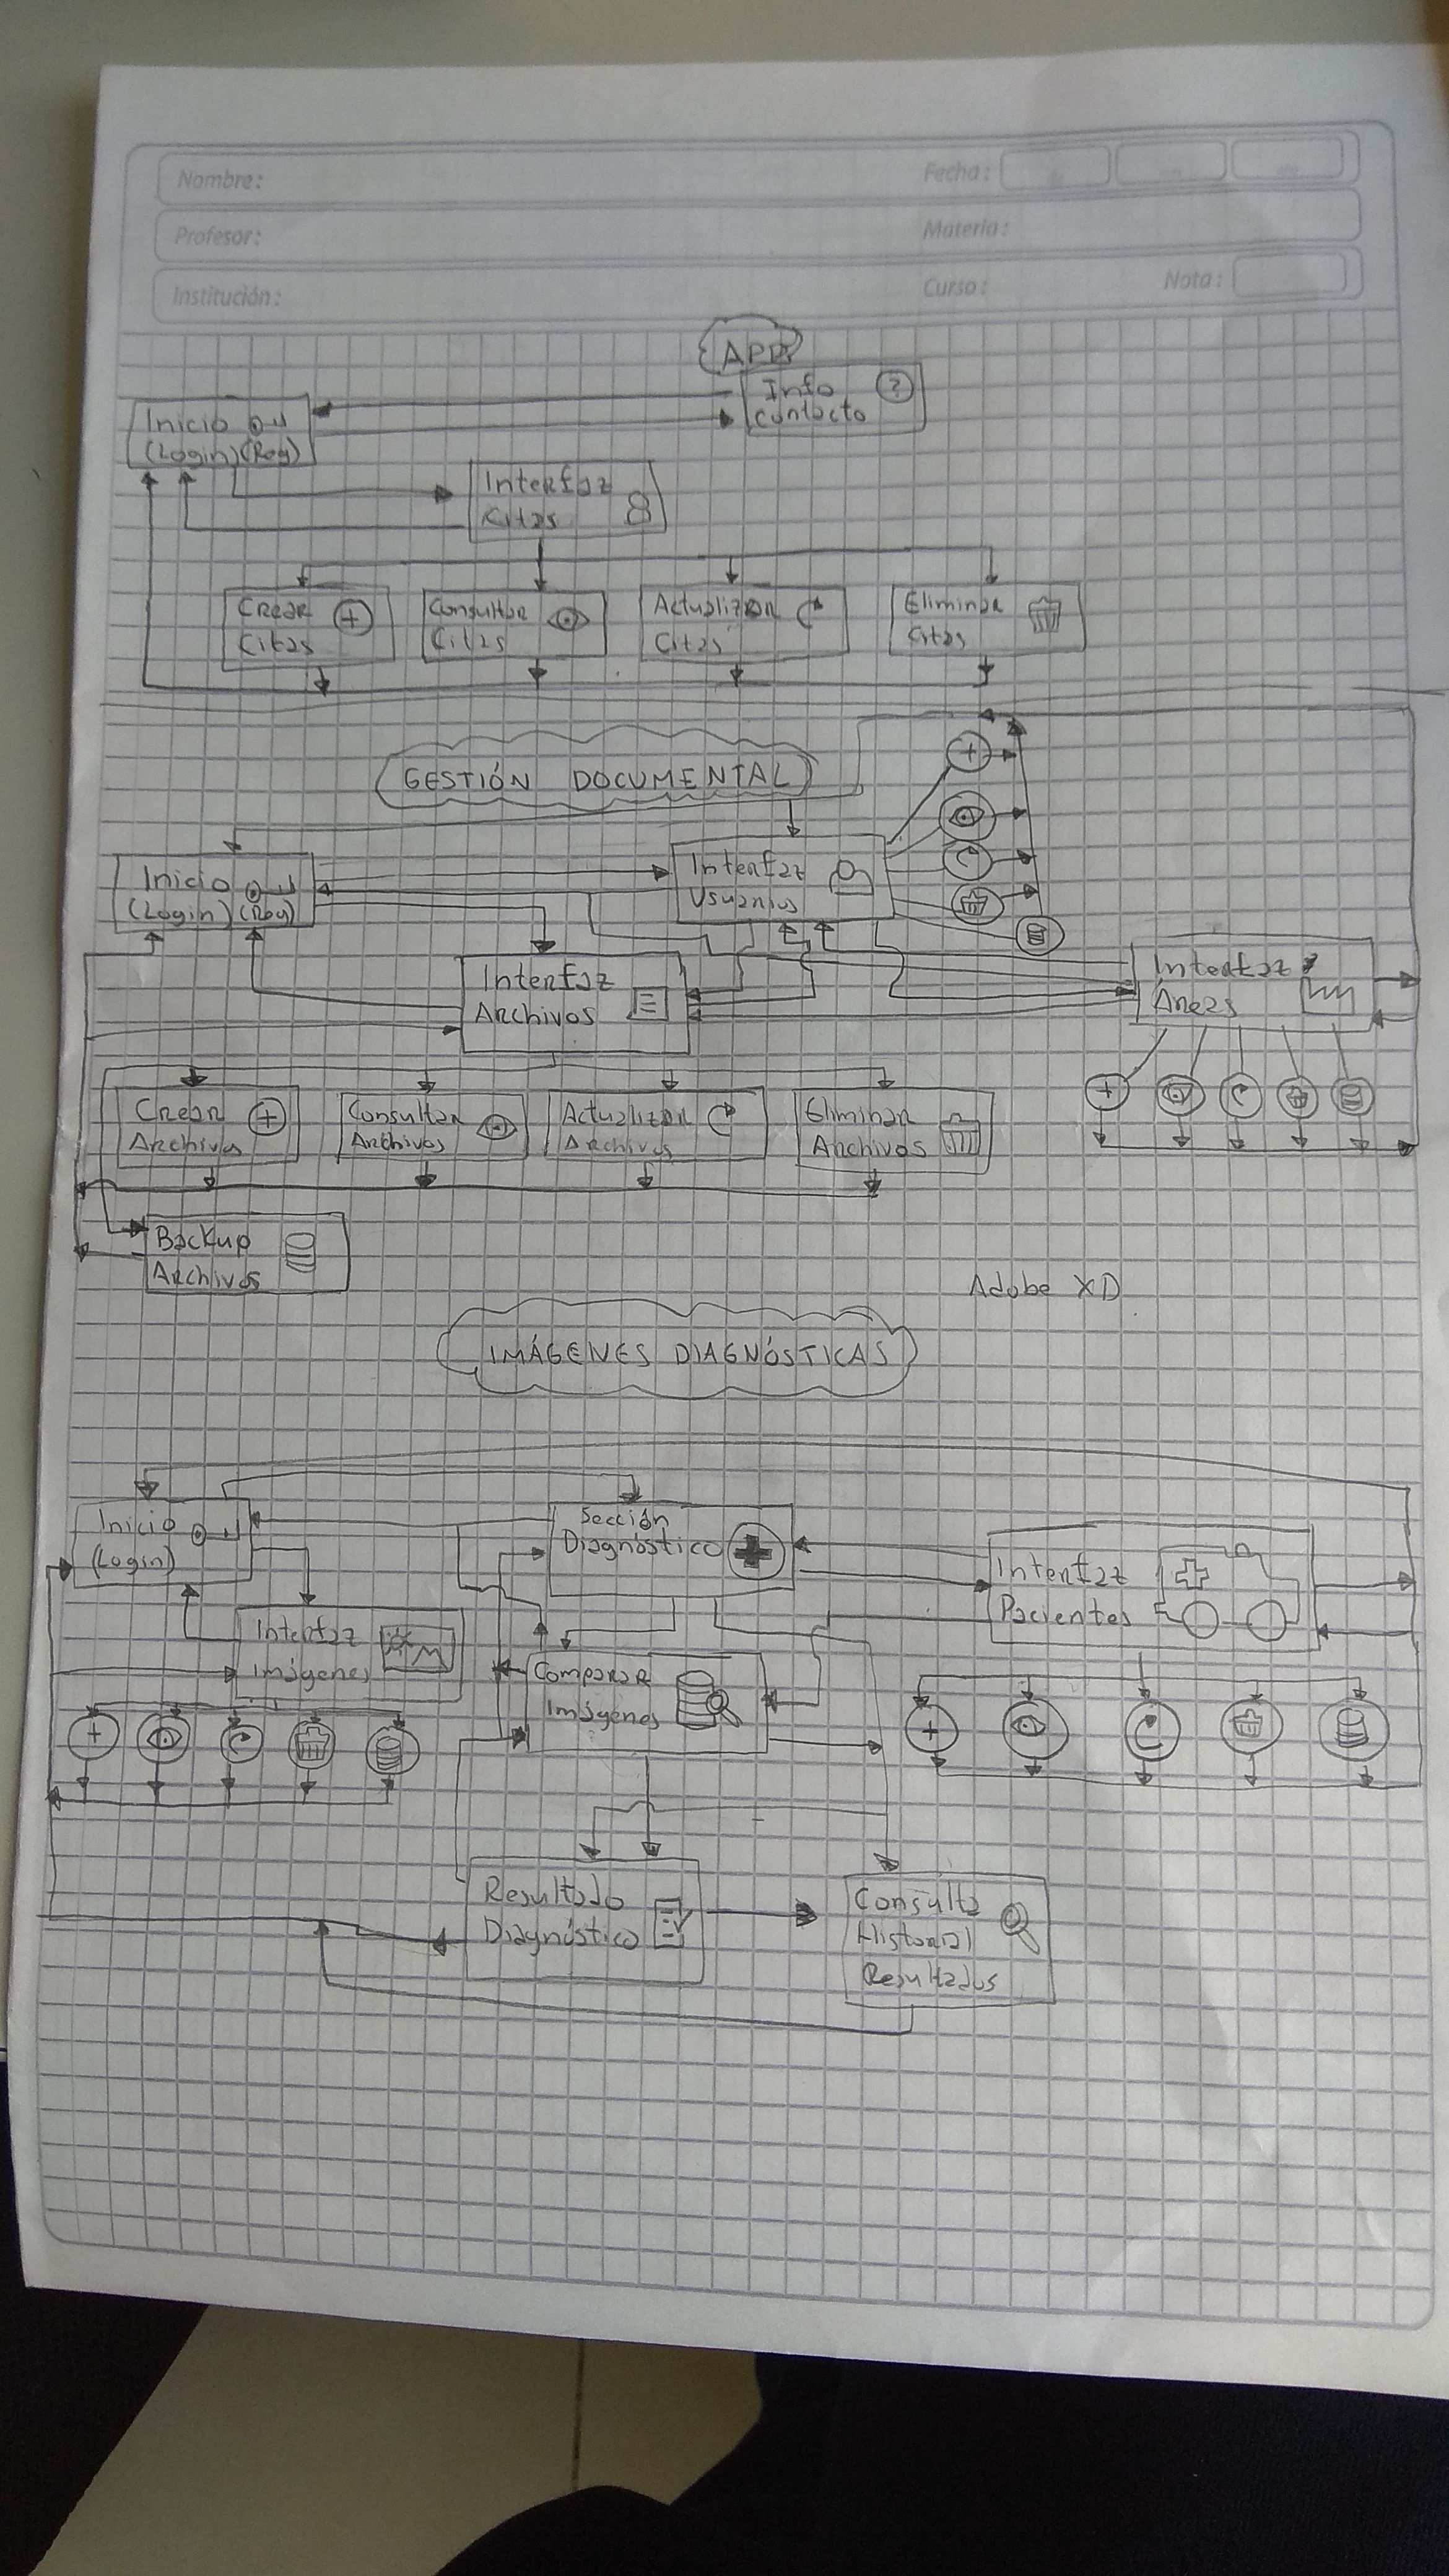 Nombre:
Fecha:
Profesor:
Materia:
Institución:
Curso:
Nota:
APP
Info
Contacto
Inicio
(Login) (Reg)
Interfaz
Citas
Crear
Citas
Consultar
Citas
Actualizar
Citas
Eliminar
Citas
GESTIÓN DOCUMENTAL
Inicio
(Login) (Reg)
Interfaz
Usuarios
Interfaz
Archivos
Interfaz
Áreas
Crear
Archivos
Consultar
Archivos
Actualizar
Archivos
Eliminar
Archivos
Backup
Archivos
Adobe XD
IMÁGENES DIAGNÓSTICAS
Inicio
(Login)
Sección
Diagnóstico
Interfaz
Pacientes
Interfaz
Imágenes
Comparar
Imágenes
Resultado
Diagnóstico
Consulta
Historial
Resultados